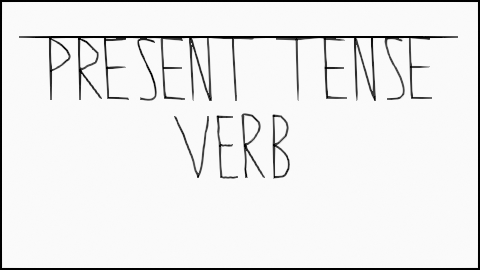 PRESENT TENSE
VERB